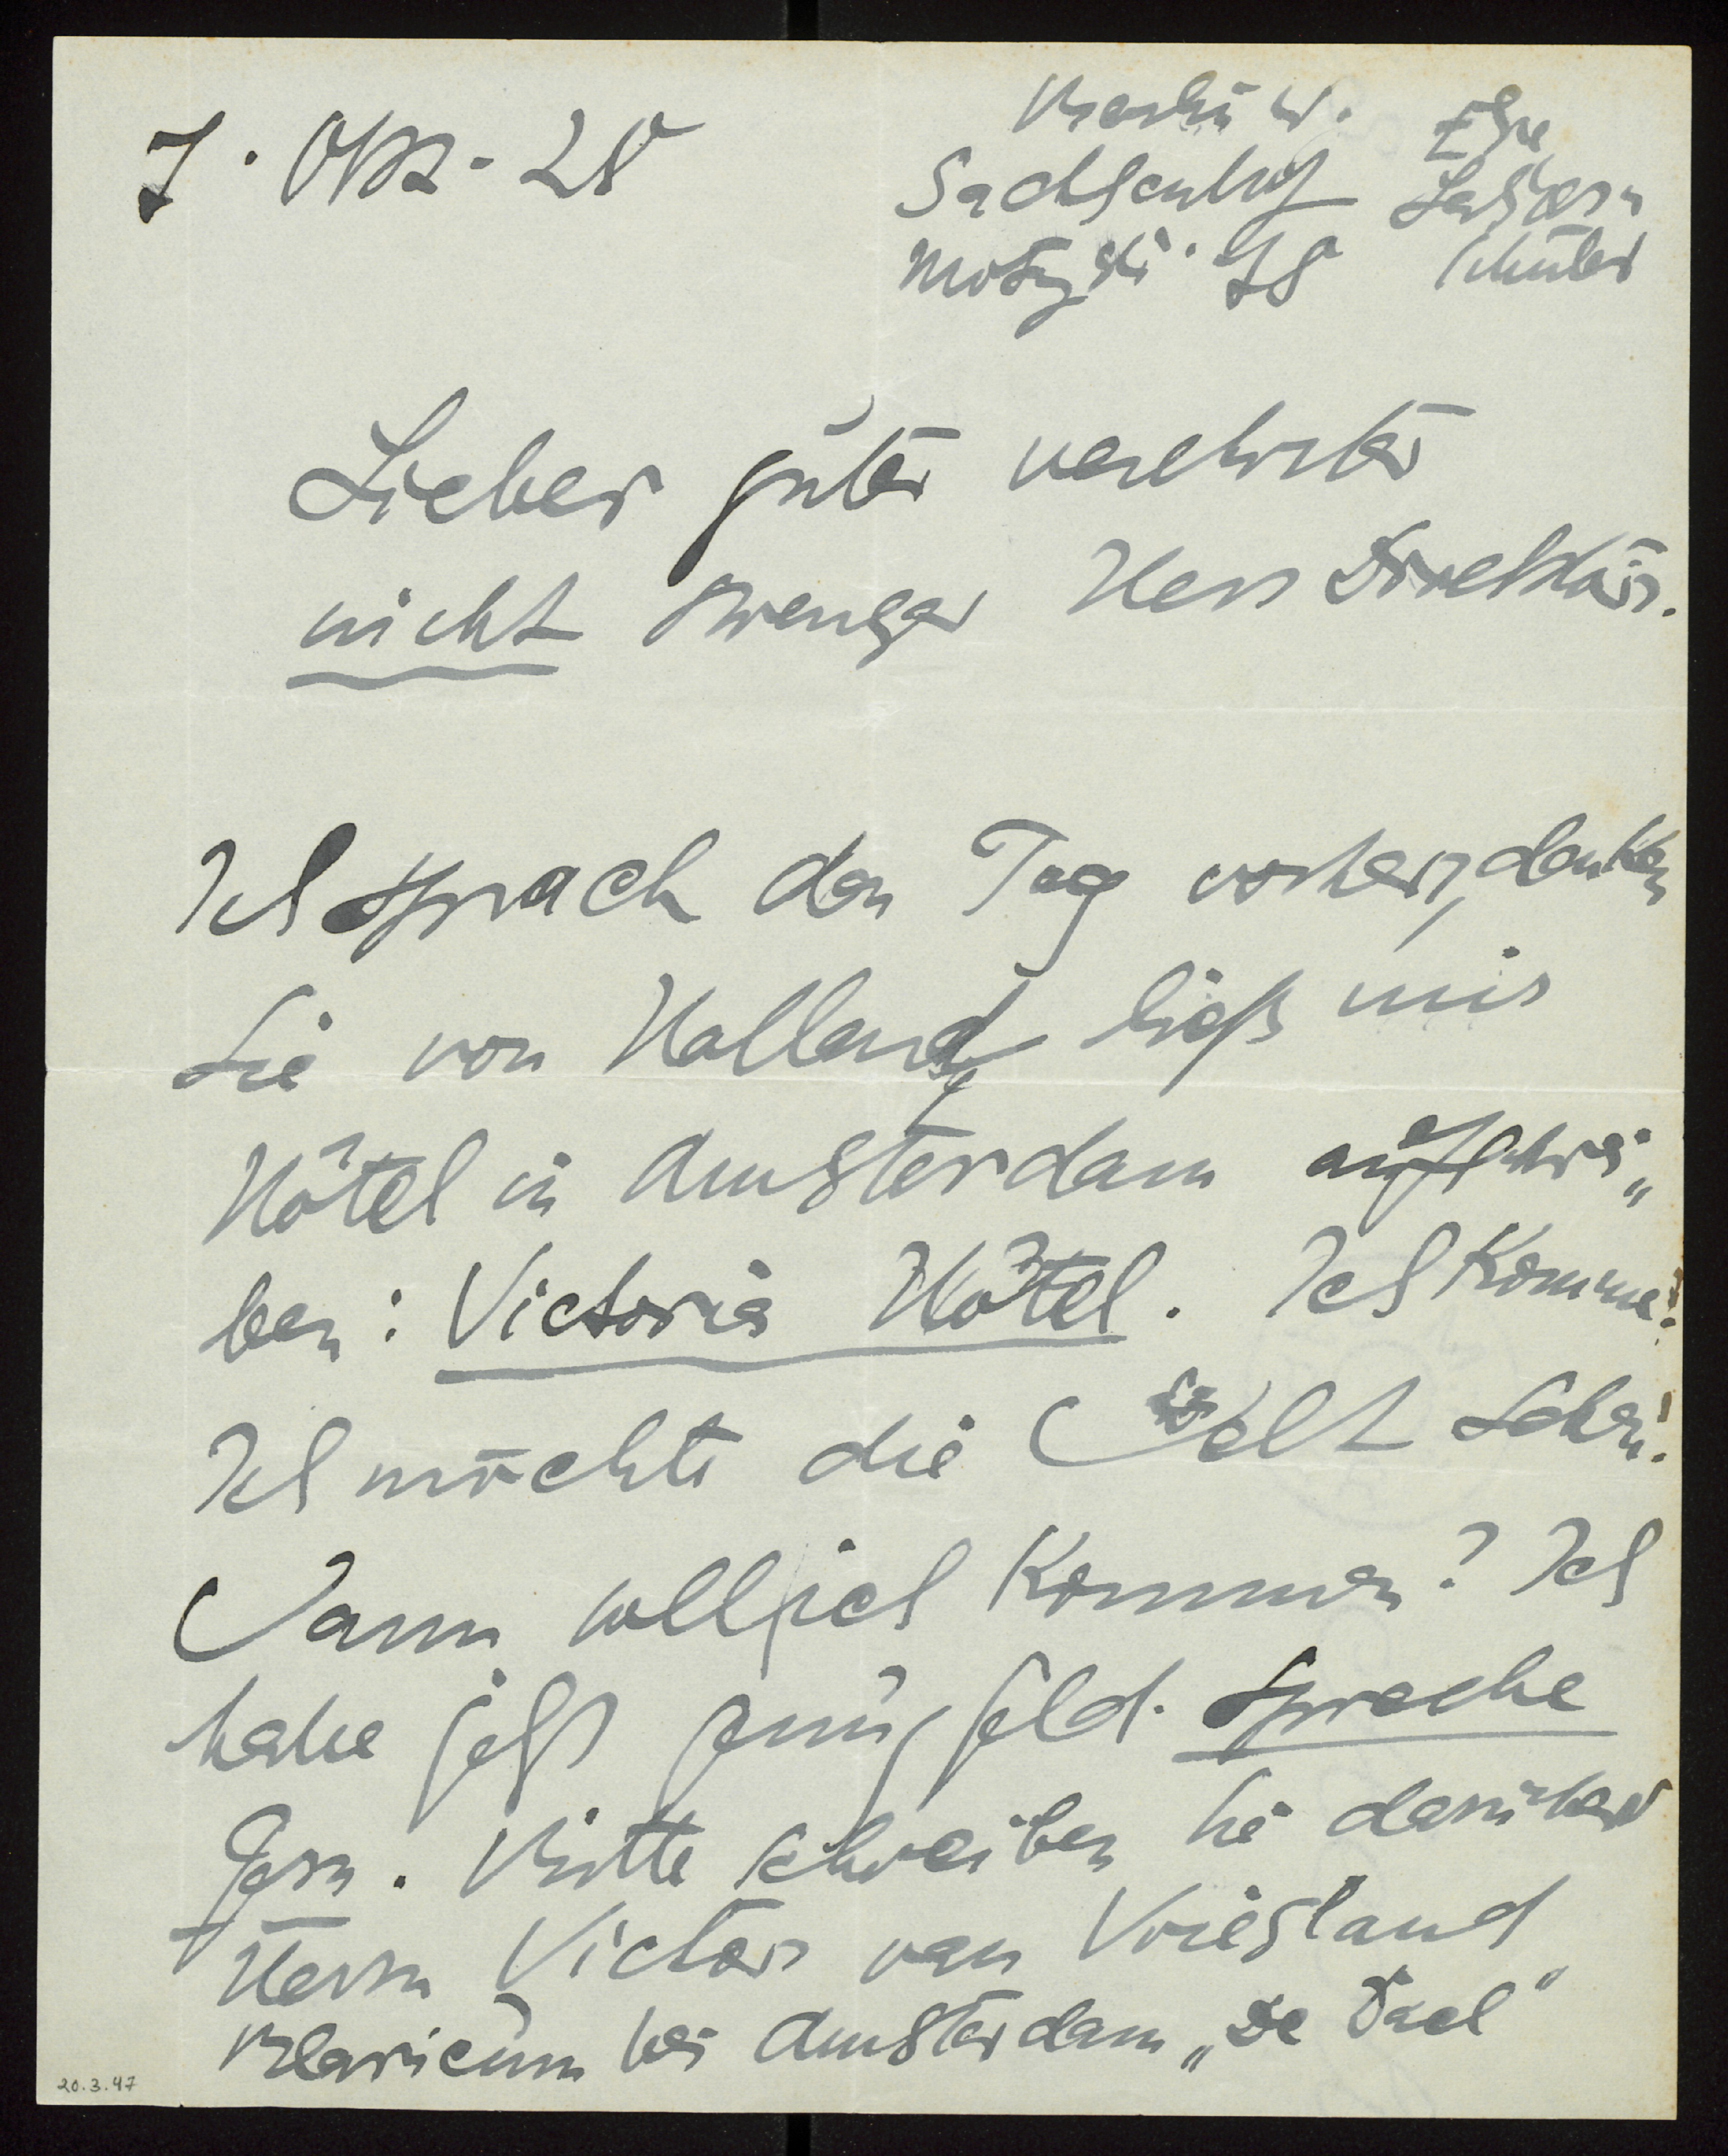 7. Okt. 28
Berlin W. Else
Sachsenhof Lasker
Motzstr. 78 Schüler
Lieber guter verehrter
nicht strenger Herr Direktor.
Ich sprach den Tag vorher, denken
Sie von Holland, ließ mir
Hôtel in Amsterdam aufschrei„
ben: Victoria Hôtel. Ich komme!
Ich möchte die Welt sehen!
Wann soll ich kommen? Ich
habe jetzt genug Geld. Spreche
gern. Bitte schreiben Sie darüber
Herrn Victor van Vriesland
Blaricum bei Amsterdam „De Dael“
20.3.47